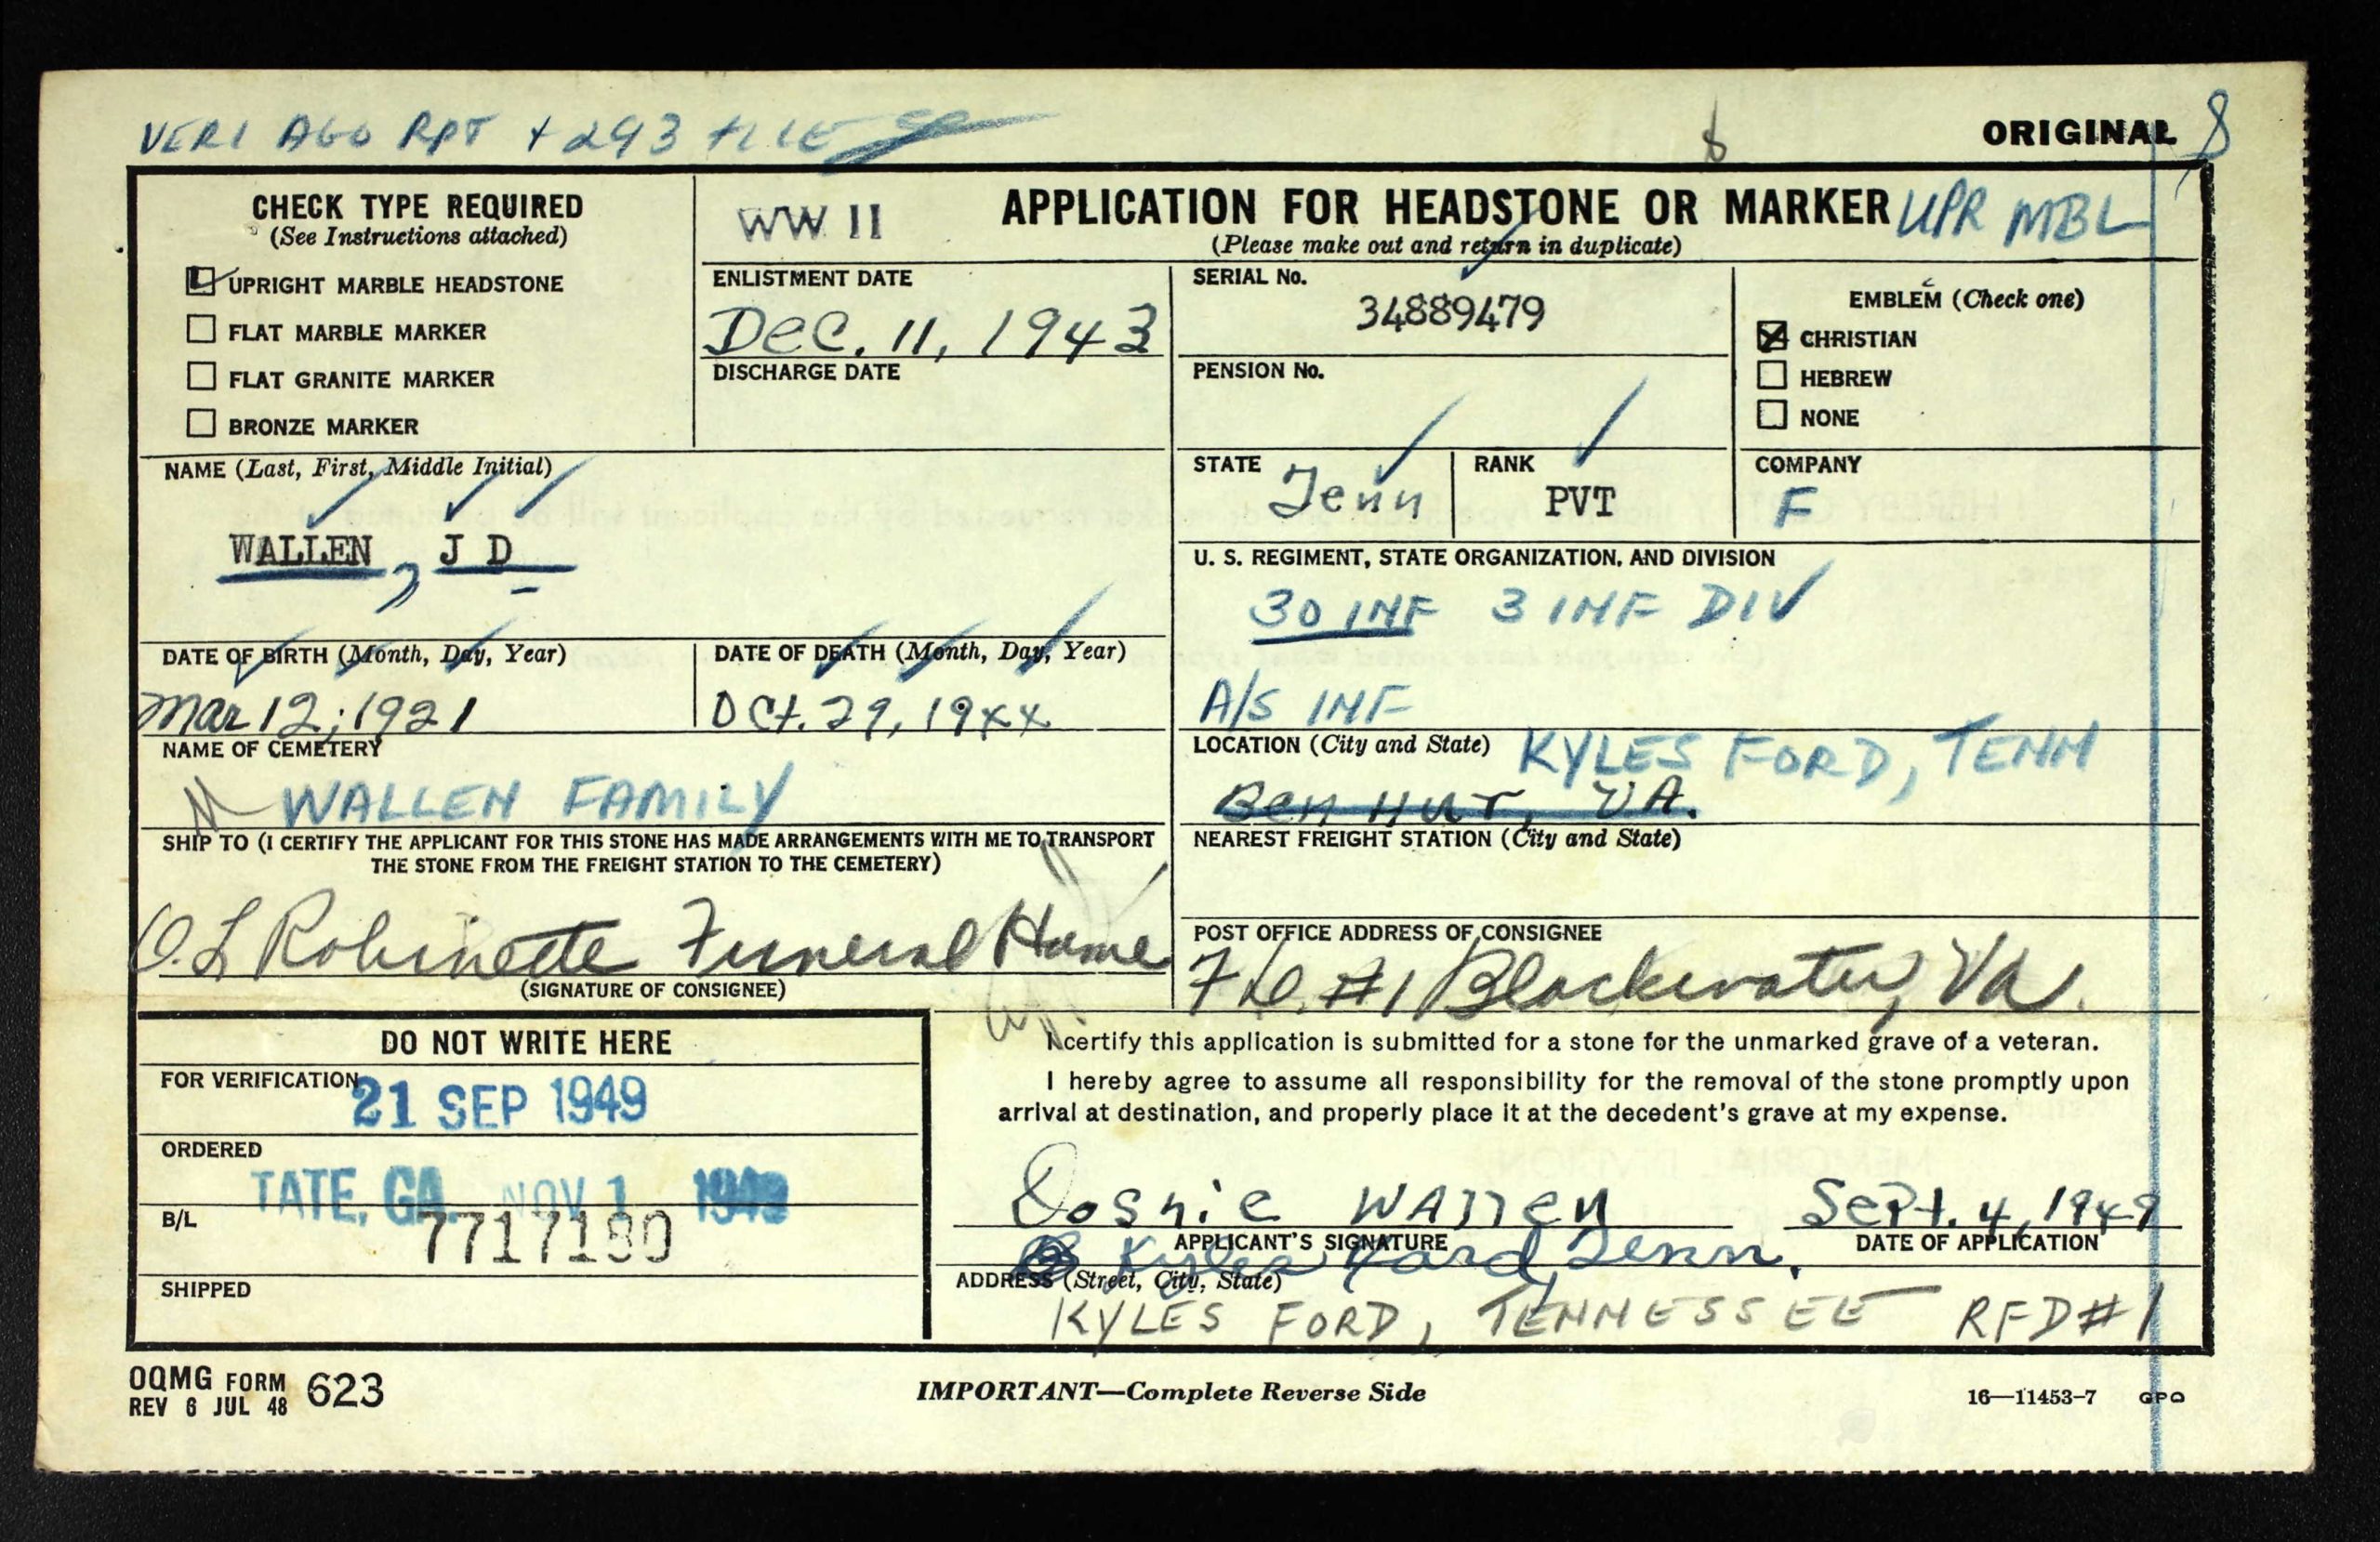 VERI AGO RPT + 293 FILE
ORIGINAL 8
CHECK TYPE REQUIRED
(See Instructions attached)
UPRIGHT MARBLE HEADSTONE
FLAT MARBLE MARKER
FLAT GRANITE MARKER
BRONZE MARKER
WW II
APPLICATION FOR HEADSTONE OR MARKER UPR MBL
(Please make out and return in duplicate)
ENLISTMENT DATE
Dec. 11, 1943
DISCHARGE DATE
SERIAL No.
34889479
PENSION No.
EMBLEM (Check one)
CHRISTIAN
HEBREW
NONE
NAME (Last, First, Middle Initial)
WALLEN, J D
STATE
Tenn
RANK
PVT
COMPANY
F
U. S. REGIMENT, STATE ORGANIZATION, AND DIVISION
30 INF 3 INF DIV
A/S INF
DATE OF BIRTH (Month, Day, Year)
Mar 12, 1921
DATE OF DEATH (Month, Day, Year)
Oct. 29, 1944
NAME OF CEMETERY
WALLEN FAMILY
LOCATION (City and State) KYLES FORD, TENN
Ben Hur, VA.
SHIP TO (I CERTIFY THE APPLICANT FOR THIS STONE HAS MADE ARRANGEMENTS WITH ME TO TRANSPORT
THE STONE FROM THE FREIGHT STATION TO THE CEMETERY)
O. L Robinette Funeral Home
(SIGNATURE OF CONSIGNEE)
NEAREST FREIGHT STATION (City and State)
POST OFFICE ADDRESS OF CONSIGNEE
#1 Blackwater, Va.
DO NOT WRITE HERE
FOR VERIFICATION
21 SEP 1949
ORDERED
TATE, GA. NOV 1 1949
B/L
7717180
SHIPPED
I certify this application is submitted for a stone for the unmarked grave of a veteran.
I hereby agree to assume all responsibility for the removal of the stone promptly upon
arrival at destination, and properly place it at the decedent's grave at my expense.
Wallen Sept. 4, 1949
APPLICANT'S SIGNATURE
DATE OF APPLICATION
Kyles Ford, Tenn.
ADDRESS (Street, City, State)
KYLES FORD, TENNESSEE RFD#1
OQMG FORM 623
REV 6 JUL 48
IMPORTANT—Complete Reverse Side
16—11453-7 GPO